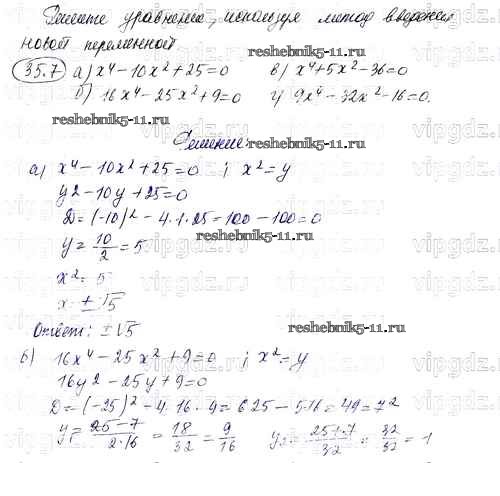 Решите уравнение, используя метод введения
новой переменной
reshebnik5-11.ru
35.7 а) x⁴ - 10x² + 25 = 0 в) x⁴ + 5x² - 36 = 0
б) 16x⁴ - 25x² + 9 = 0 г) 9x⁴ - 32x² - 16 = 0.
reshebnik5-11.ru reshebnik5-11.ru
Решение:
а) x⁴ - 10x² + 25 = 0 ; x² = y
y2 - 10y + 25 = 0
D = (-10)² - 4·1·25 = 100 - 100 = 0
y = 10/2 = 5
reshebnik5-11.ru
x² = 5
x = ±√5
Ответ: ±√5
reshebnik5-11.ru
б) 16x⁴ - 25x² + 9 = 0 ; x² = y
16y2 - 25y + 9 = 0
D = (-25)² - 4·16·9 = 625 - 516 = 49 = 7²
y₁ = 25-7/2·16 = 18/32 = 9/16 y₂ = 25+7/32 = 32/32 = 1
reshebnik5-11.ru
vipgdz.com